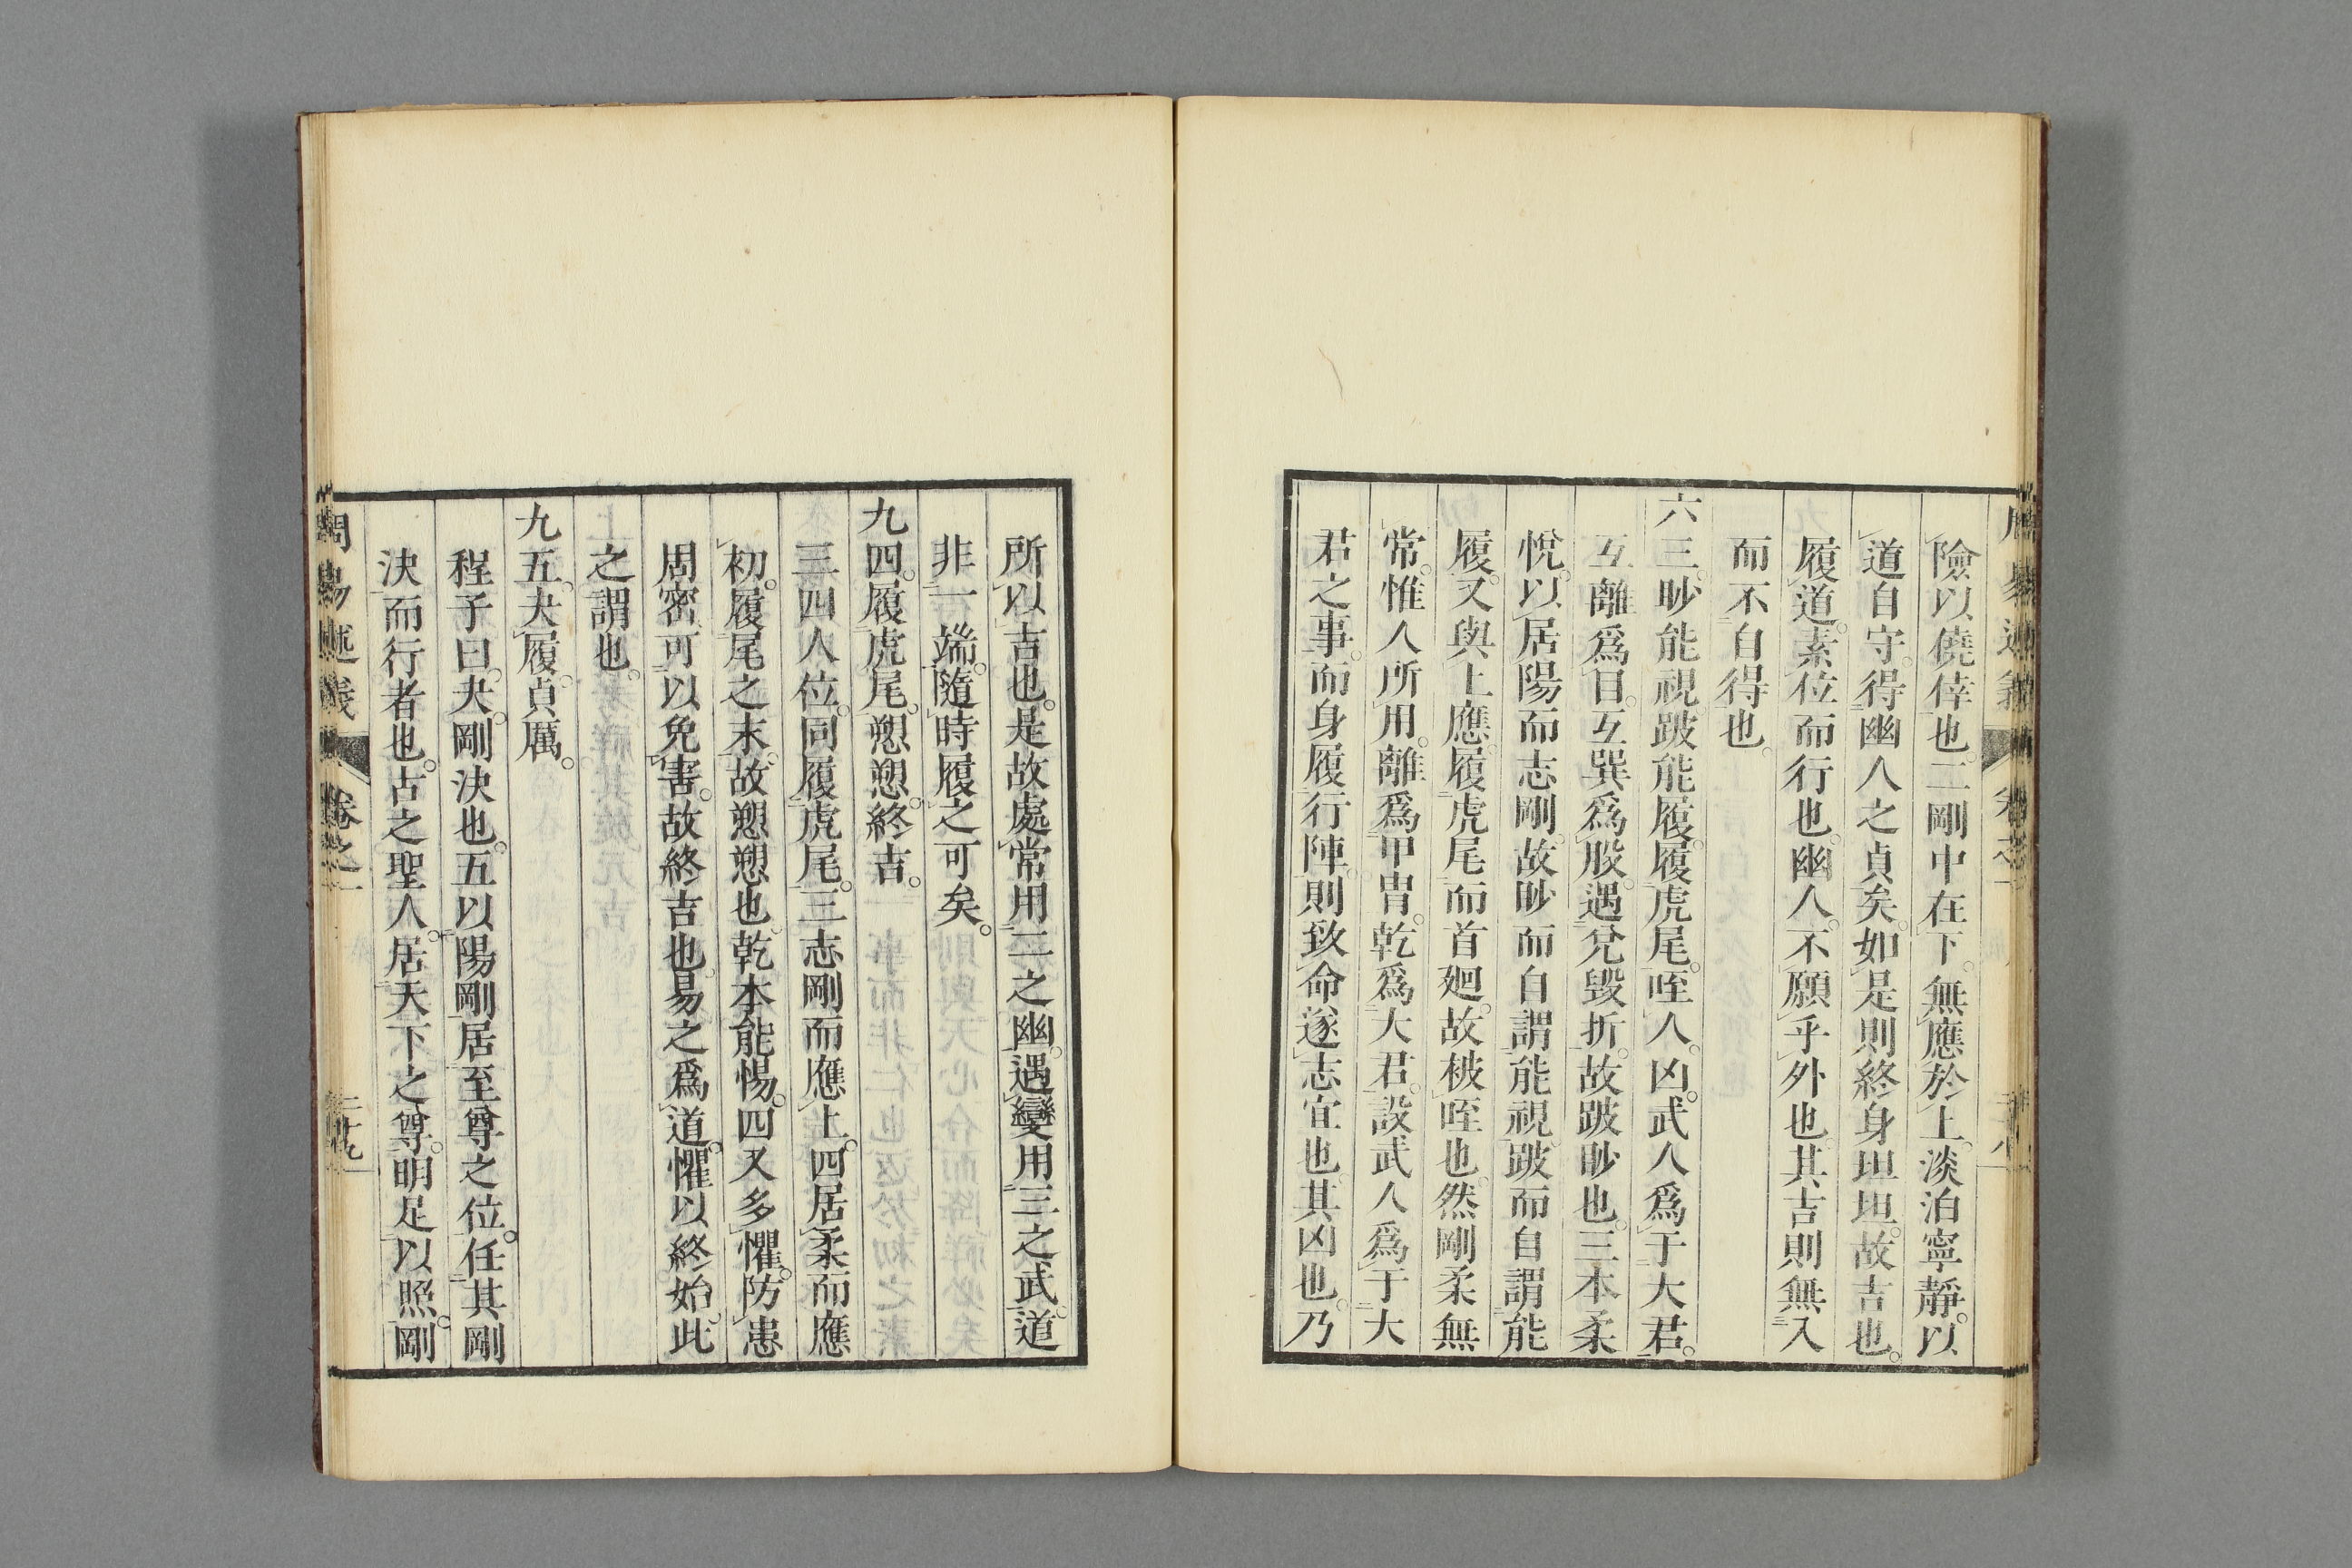 險以僥倖也。二剛中在下。無應於上。淡泊寧靜。以
道自守。得幽人之貞矣。如是則終身坦坦。故吉也。
履道。素位而行也。幽人。不願乎外也。其吉則無入
而不自得也。
六三。眇能視。跛能履。履虎尾。咥人。凶。武人爲于大君。
互離爲目。互巽爲股。遇兌毀折。故跛眇也。三本柔
悅。以居陽而志剛。故眇而自謂能視。跛而自謂能
履。又與上應。履虎尾而首廻。故被咥也。然剛柔無
常。惟人所用。離爲甲冑。乾爲大君。設武人爲于大
君之事。而身履行陣。則致命遂志宜也。其凶也。乃
所以吉也。是故處常用二之幽。遇變用三之武。道
非一端。隨時履之可矣。
九四。履虎尾。愬愬。終吉。
三四人位。同履虎尾。三志剛而應上。四居柔而應
初。履尾之末。故愬愬也。乾本能惕。四又多懼。防患
周密。可以免害。故終吉也。易之爲道。懼以終始。此
之謂也。
九五。夬履。貞厲。
程子曰。夬。剛決也。五以陽剛居至尊之位。任其剛
決而行者也。古之聖人。居天下之尊。明足以照。剛
周易述義 卷之一 二十九